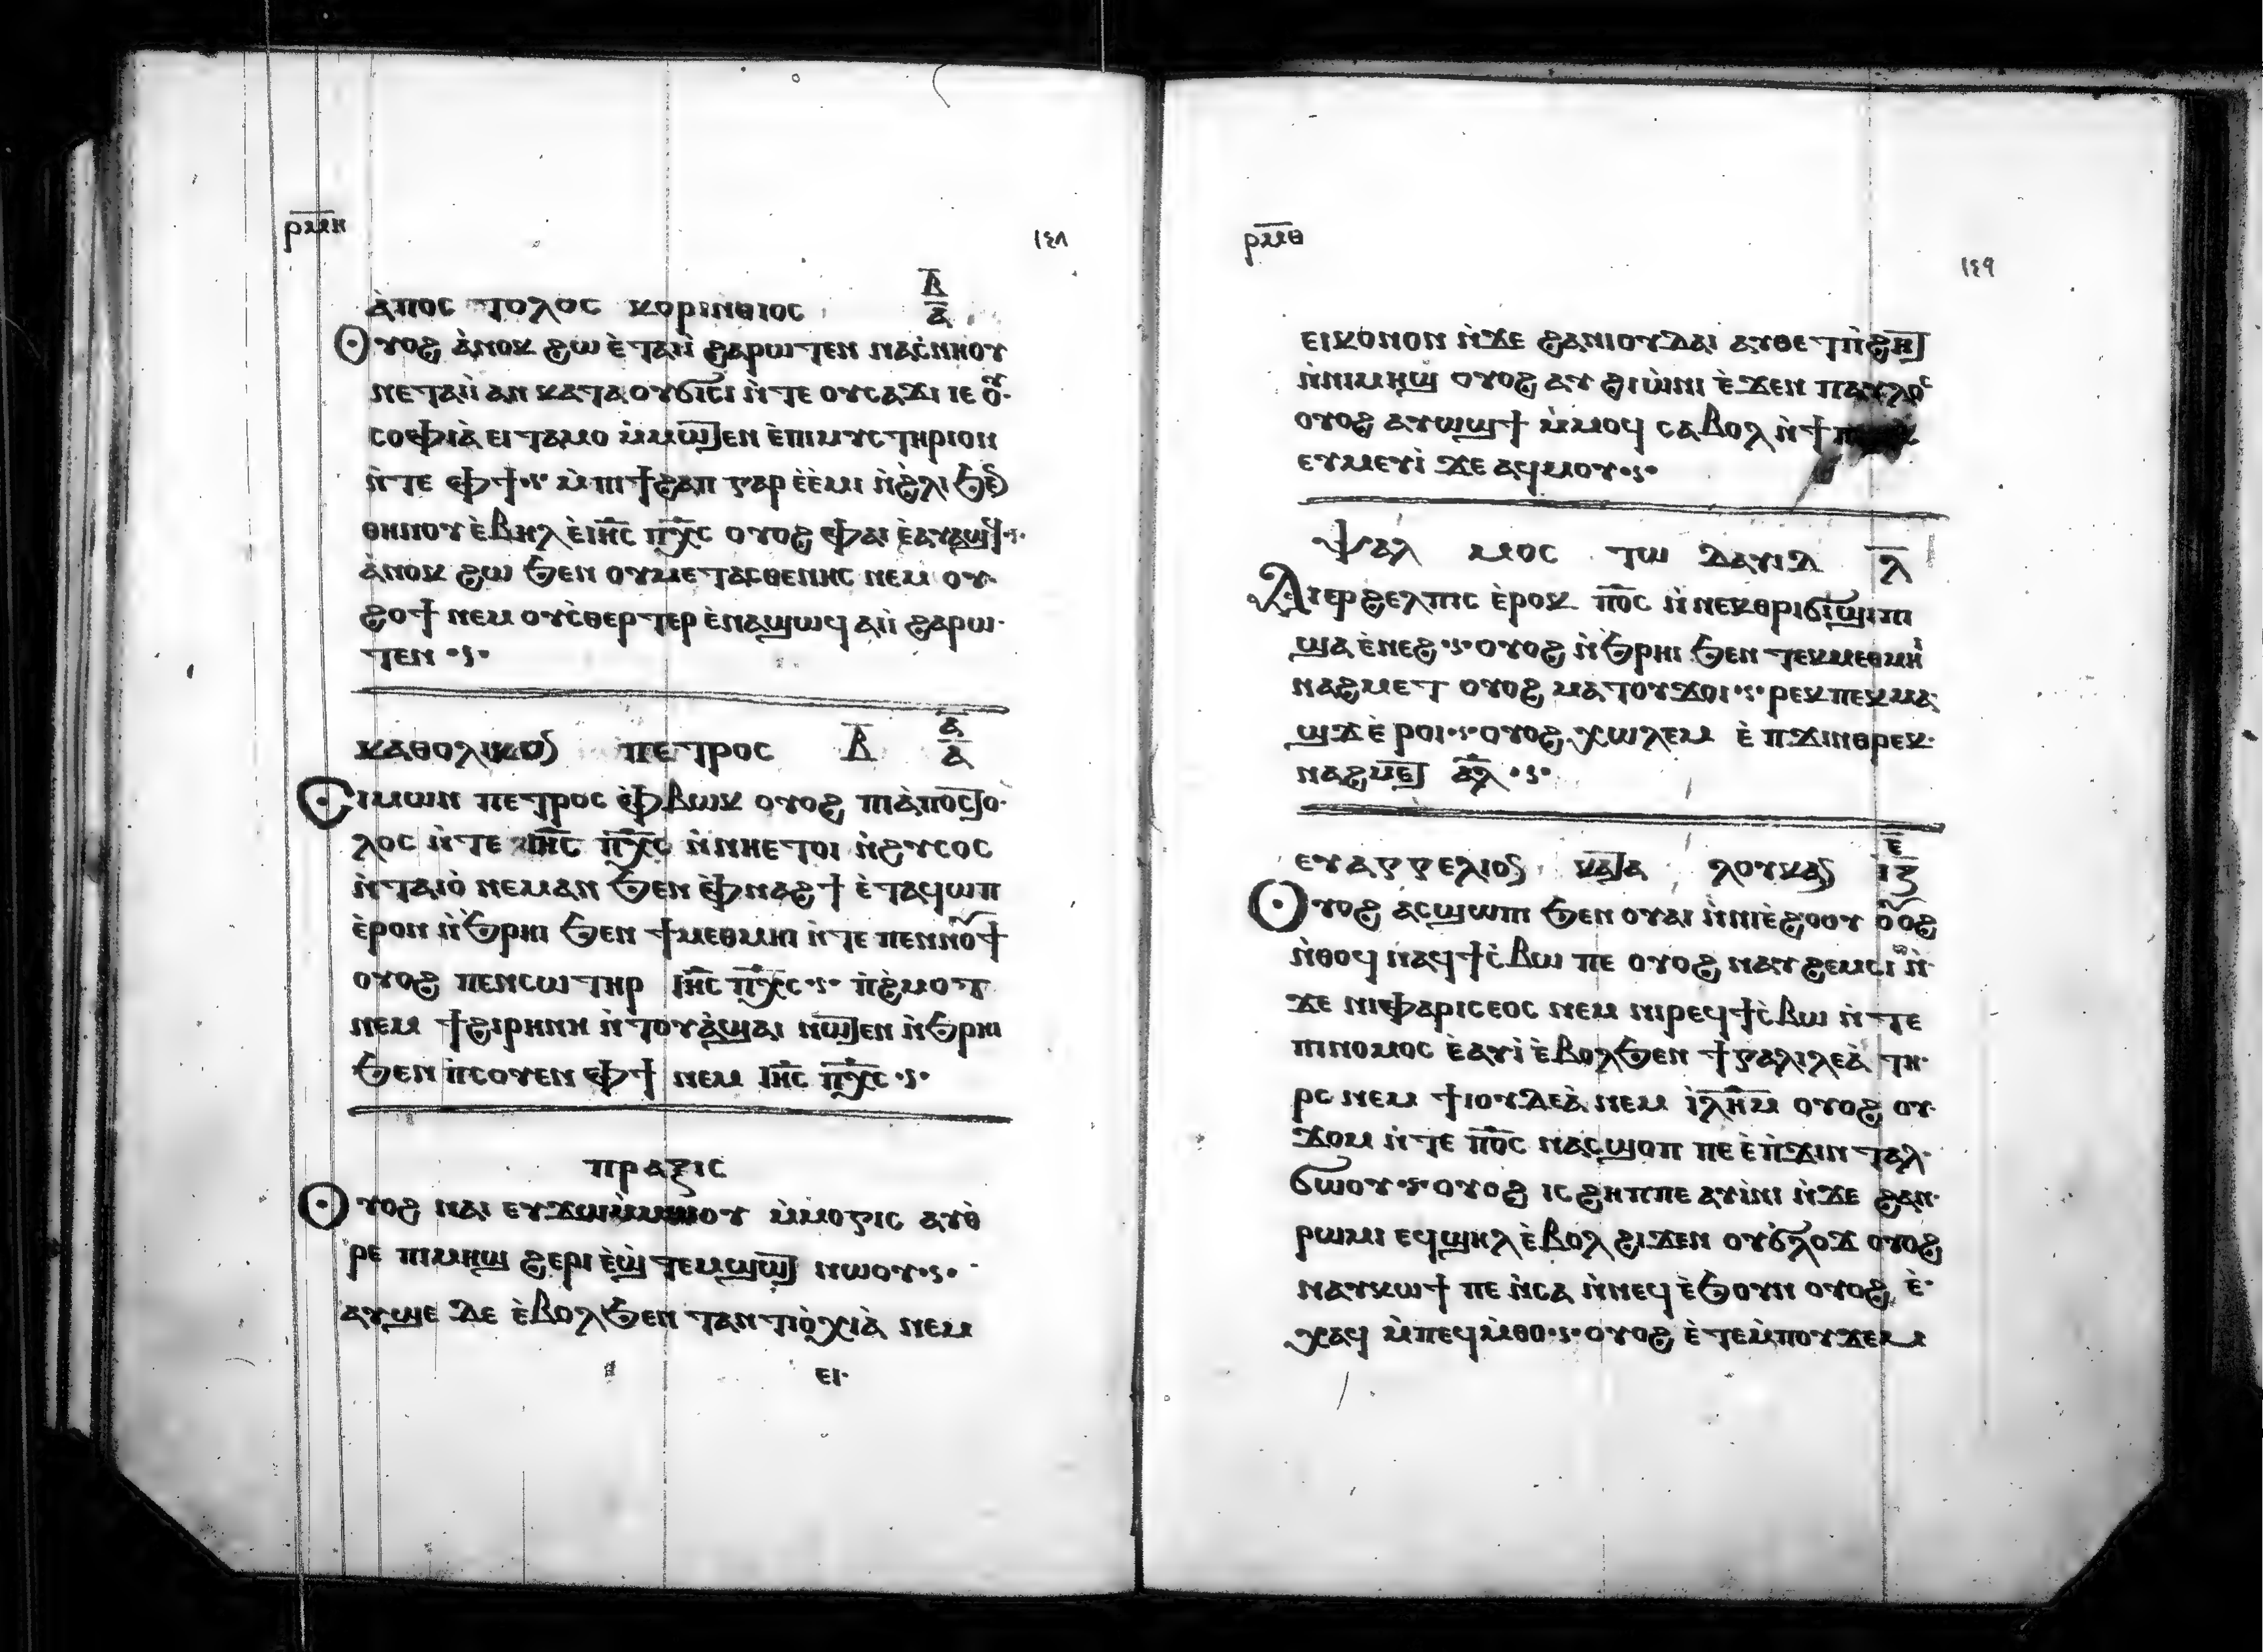 ⲣ̅ⲙ̅ⲏ̅
١٤٨
ⲁ̀ⲡⲟⲥ ⲧⲟⲗⲟⲥ ⲕⲟⲣⲓⲛⲑⲓⲟⲥ ⲃ̅ ⲁ̅
Ⲟⲩⲟϩ ⲁ̀ⲛⲟⲕ ϩⲱ ⲉ̀ⲧⲁⲓ̀ⲓ ϩⲁⲣⲱⲧⲉⲛ ⲛⲁⲥ̀ⲛⲏⲟⲩ
ⲛⲉⲧⲁⲓ̀ⲓ ⲁⲛ ⲕⲁⲧⲁ ⲟⲩϭⲓⲥⲓ ⲛ̀ⲧⲉ ⲟⲩⲥⲁϫⲓ ⲓⲉ ⲟⲩ̀
ⲥⲟⲫⲓⲁ̀ ⲉⲓⲧⲁⲙⲟ ⲙ̀ⲙⲱⲧⲉⲛ ⲉ̀ⲡⲓⲙⲩⲥⲧⲏⲣⲓⲟⲛ
ⲛ̀ⲧⲉ ⲫϯ ⲙ̀ⲡⲓϯϩⲁⲡ ⲅⲁⲣ ⲉ̀ⲉ̀ⲙⲓ ⲛ̀ϩ̀ⲗⲓ ϧⲉⲛ
ⲑⲏⲛⲟⲩ ⲉ̀ⲃⲏⲗ ⲉ̀ⲓⲏ̅ⲥ̅ ⲡ̅ⲭ̅ⲥ̅ ⲟⲩⲟϩ ⲫⲁⲓ ⲉ̀ⲁⲩⲁϣϥ
ⲁ̀ⲛⲟⲕ ϩⲱ ϧⲉⲛ ⲟⲩⲙⲉⲧⲁⲥⲑⲉⲛⲏⲥ ⲛⲉⲙ ⲟⲩ
ϩⲟϯ ⲛⲉⲙ ⲟⲩⲥ̀ⲑⲉⲣⲧⲉⲣ ⲉ̀ⲛⲁϣⲱϥ ⲁⲓ̀ⲓ ϩⲁⲣⲱ
ⲧⲉⲛ
ⲕⲁⲑⲟⲗⲓⲕⲟⲛ ⲡⲉⲧⲣⲟⲥ ⲃ̅ ⲁ̅ ⲁ̅
Ⲥⲓⲙⲱⲛ ⲡⲉⲧⲣⲟⲥ ⲫ̀ⲃⲱⲕ ⲟⲩⲟϩ ⲡⲓⲁ̀ⲡⲟⲥⲧⲟ
ⲗⲟⲥ ⲛ̀ⲧⲉ ⲓⲏ̅ⲥ̅ ⲡ̅ⲭ̅ⲥ̅ ⲛ̀ⲛⲏⲉⲧⲟⲓ ⲛ̀ϩⲩⲥⲟⲥ
ⲛ̀ⲧⲁⲓⲟ̀ ⲛⲉⲙⲁⲛ ϧⲉⲛ ⲫ̀ⲛⲁϩϯ ⲉ̀ⲧⲁϥϣⲱⲡ
ⲉ̀ⲣⲟⲛ ⲛ̀ϧⲣⲏⲓ ϧⲉⲛ ϯⲙⲉⲑⲙⲏⲓ ⲛ̀ⲧⲉ ⲡⲉⲛⲛⲟⲩϯ
ⲟⲩⲟϩ ⲡⲉⲛⲥⲱⲧⲏⲣ ⲓⲏ̅ⲥ̅ ⲡ̅ⲭ̅ⲥ̅ ⲡ̀ϩ̀ⲙⲟⲧ
ⲛⲉⲙ ϯϩⲓⲣⲏⲛⲏ ⲛ̀ⲧⲟⲩⲁ̀ϣⲁⲓ ⲛⲱⲧⲉⲛ ⲛ̀ϧⲣⲏⲓ
ϧⲉⲛ ⲡ̀ⲥⲟⲩⲉⲛ ⲫϯ ⲛⲉⲙ ⲓⲏ̅ⲥ̅ ⲡ̅ⲭ̅ⲥ̅
ⲡⲣⲁⲝⲓⲥ
Ⲟⲩⲟϩ ⲛⲁⲓ ⲉⲩϫⲱ ⲙ̀ⲙⲱⲟⲩ ⲙ̀ⲙⲟⲅⲓⲥ ⲁⲩⲑ̀
ⲣⲉ ⲡⲓⲙⲏϣ ϩⲉⲣⲓ ⲉ̀ϣ̀ⲧⲉⲙϣⲱⲧ ⲛⲱⲟⲩ
ⲁⲩϣⲉ ⲇⲉ ⲉ̀ⲃⲟⲗϧⲉⲛ ⲧⲁⲛⲧⲓⲟ̀ⲭⲓⲁ̀ ⲛⲉⲙ
ⲉⲓ
ⲣ̅ⲙ̅ⲑ̅
١٤٩
ⲉⲓⲕⲟⲛⲟⲛ ⲛ̀ϫⲉ ϩⲁⲛⲓⲟⲩⲇⲁⲓ ⲁⲩⲑⲉⲧⲡ̀ϩⲏⲧ
ⲛ̀ⲛⲓⲙⲏϣ ⲟⲩⲟϩ ⲁⲩ ϩⲓⲱ̀ⲛⲓ ⲉ̀ϫⲉⲛ ⲡⲁⲩⲗⲟⲥ
ⲟⲩⲟϩ ⲁⲩϣϣϯ ⲙ̀ⲙⲟϥ ⲥⲁⲃⲟⲗ ⲛ̀ϯ
ⲉⲩⲙⲉⲩⲓ̀ ϫⲉ ⲁϥⲙⲟⲩ
Ⲯⲁⲗ ⲙⲟⲥ ⲧⲱ ⲇⲁⲩⲓⲇ ⲗ̅
Ⲁⲓⲉⲣϩⲉⲗⲡⲓⲥ ⲉ̀ⲣⲟⲕ ⲡ̅ⲟ̅ⲥ̅ ⲛ̀ⲛⲉⲕⲑⲣⲓϭⲓϣⲓⲡⲓ
ϣⲁ ⲉ̀ⲛⲉϩ ⲟⲩⲟϩ ⲛ̀ϧⲣⲏⲓ ϧⲉⲛ ⲧⲉⲕⲙⲉⲑⲙⲏⲓ
ⲛⲁϩⲙⲉⲧ ⲟⲩⲟϩ ⲙⲁⲧⲟⲩϫⲟⲓ ⲣⲉⲕ ⲡⲉⲕⲙⲁ
ϣϫ ⲉ̀ⲣⲟⲓ ⲟⲩⲟϩ ⲭⲱⲗⲉⲙ ⲉ̀ ⲡϫⲓⲛⲑⲣⲉⲕ
ⲛⲁϩⲙⲉⲧ ⲁ̅ⲗ̅
ⲉⲩⲁⲅⲅⲉⲗⲓⲟⲛ ⲕⲁⲧⲁ ⲗⲟⲩⲕⲁⲛ ⲉ̅ ⲓ̅ⲍ̅
Ⲟⲩⲟϩ ⲁⲥϣⲱⲡⲓ ϧⲉⲛ ⲟⲩⲁⲓ ⲛ̀ⲛⲓⲉ̀ϩⲟⲟⲩ ⲟⲩⲟϩ
ⲛ̀ⲑⲟϥ ⲛⲁϥϯⲥ̀ⲃⲱ ⲡⲉ ⲟⲩⲟϩ ⲛⲁⲩϩⲉⲙⲥⲓ ⲛ̀
ϫⲉ ⲛⲓⲫⲁⲣⲓⲥⲉⲟⲥ ⲛⲉⲙ ⲛⲓⲣⲉϥϯⲥ̀ⲃⲱ ⲛ̀ⲧⲉ
ⲡⲓⲛⲟⲙⲟⲥ ⲉ̀ⲁⲩⲓ̀ ⲉ̀ⲃⲟⲗϧⲉⲛ ϯⲅⲁⲗⲓⲗⲉⲁ̀ ⲧⲏ
ⲣⲥ ⲛⲉⲙ ϯⲓⲟⲩⲇⲉⲁ̀ ⲛⲉⲙ ⲓ̅ⲗ̅ⲏ̅ⲙ̅ ⲟⲩⲟϩ ⲟⲩ
ϫⲟⲙ ⲛ̀ⲧⲉ ⲡ̅ⲟ̅ⲥ̅ ⲛⲁⲥϣⲟⲡ ⲡⲉ ⲉ̀ⲡ̀ϫⲓⲛ ⲧⲁⲗ
ϭⲱⲟⲩ ⲟⲩⲟϩ ⲓⲥ ϩⲏⲡⲡⲉ ⲁⲩⲓ̀ⲛⲓ ⲛ̀ϫⲉ ϩⲁⲛ
ⲣⲱⲙⲓ ⲉϥϣⲏⲗ ⲉ̀ⲃⲟⲗ ϩⲓϫⲉⲛ ⲟⲩϭ̀ⲗⲟϫ ⲟⲩⲟϩ
ⲛⲁⲩⲕⲱϯ ⲡⲉ ⲛ̀ⲥⲁ ⲛ̀ⲛⲉϥ ⲉ̀ϧⲟⲩⲛ ⲟⲩⲟϩ ⲉ̀
ⲭⲁϥ ⲙ̀ⲡⲉϥⲙ̀ⲑⲟ ⲟⲩⲟϩ ⲉ̀ⲧⲉⲙ̀ⲡⲟⲩϫⲉⲙ